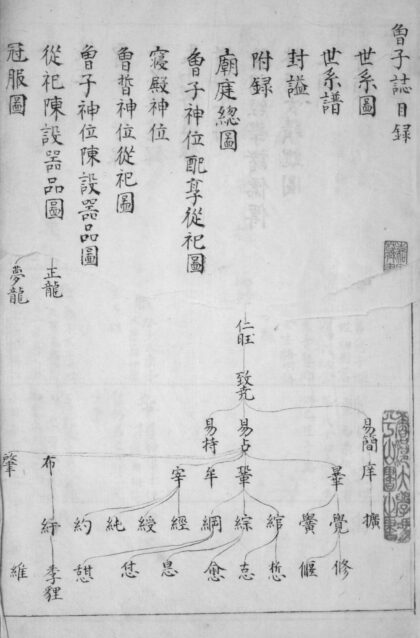 曾子誌目録
世系圖
世系譜
封謚
附録
廟庭總圖
曾子神位配享從祀圖
寢殿神位
曾晳神位從祀圖
曾子神位陳設器品圖
從祀陳設器品圖
冠服圖
正龍
夢龍
仁旺
致堯
易簡 易占 易持
庠 鞏 牟 宰 布 肇
擴 覺 黌 綰 綜 綱 經 綬 純 約 紆 維
修 偃 悊 愈 息